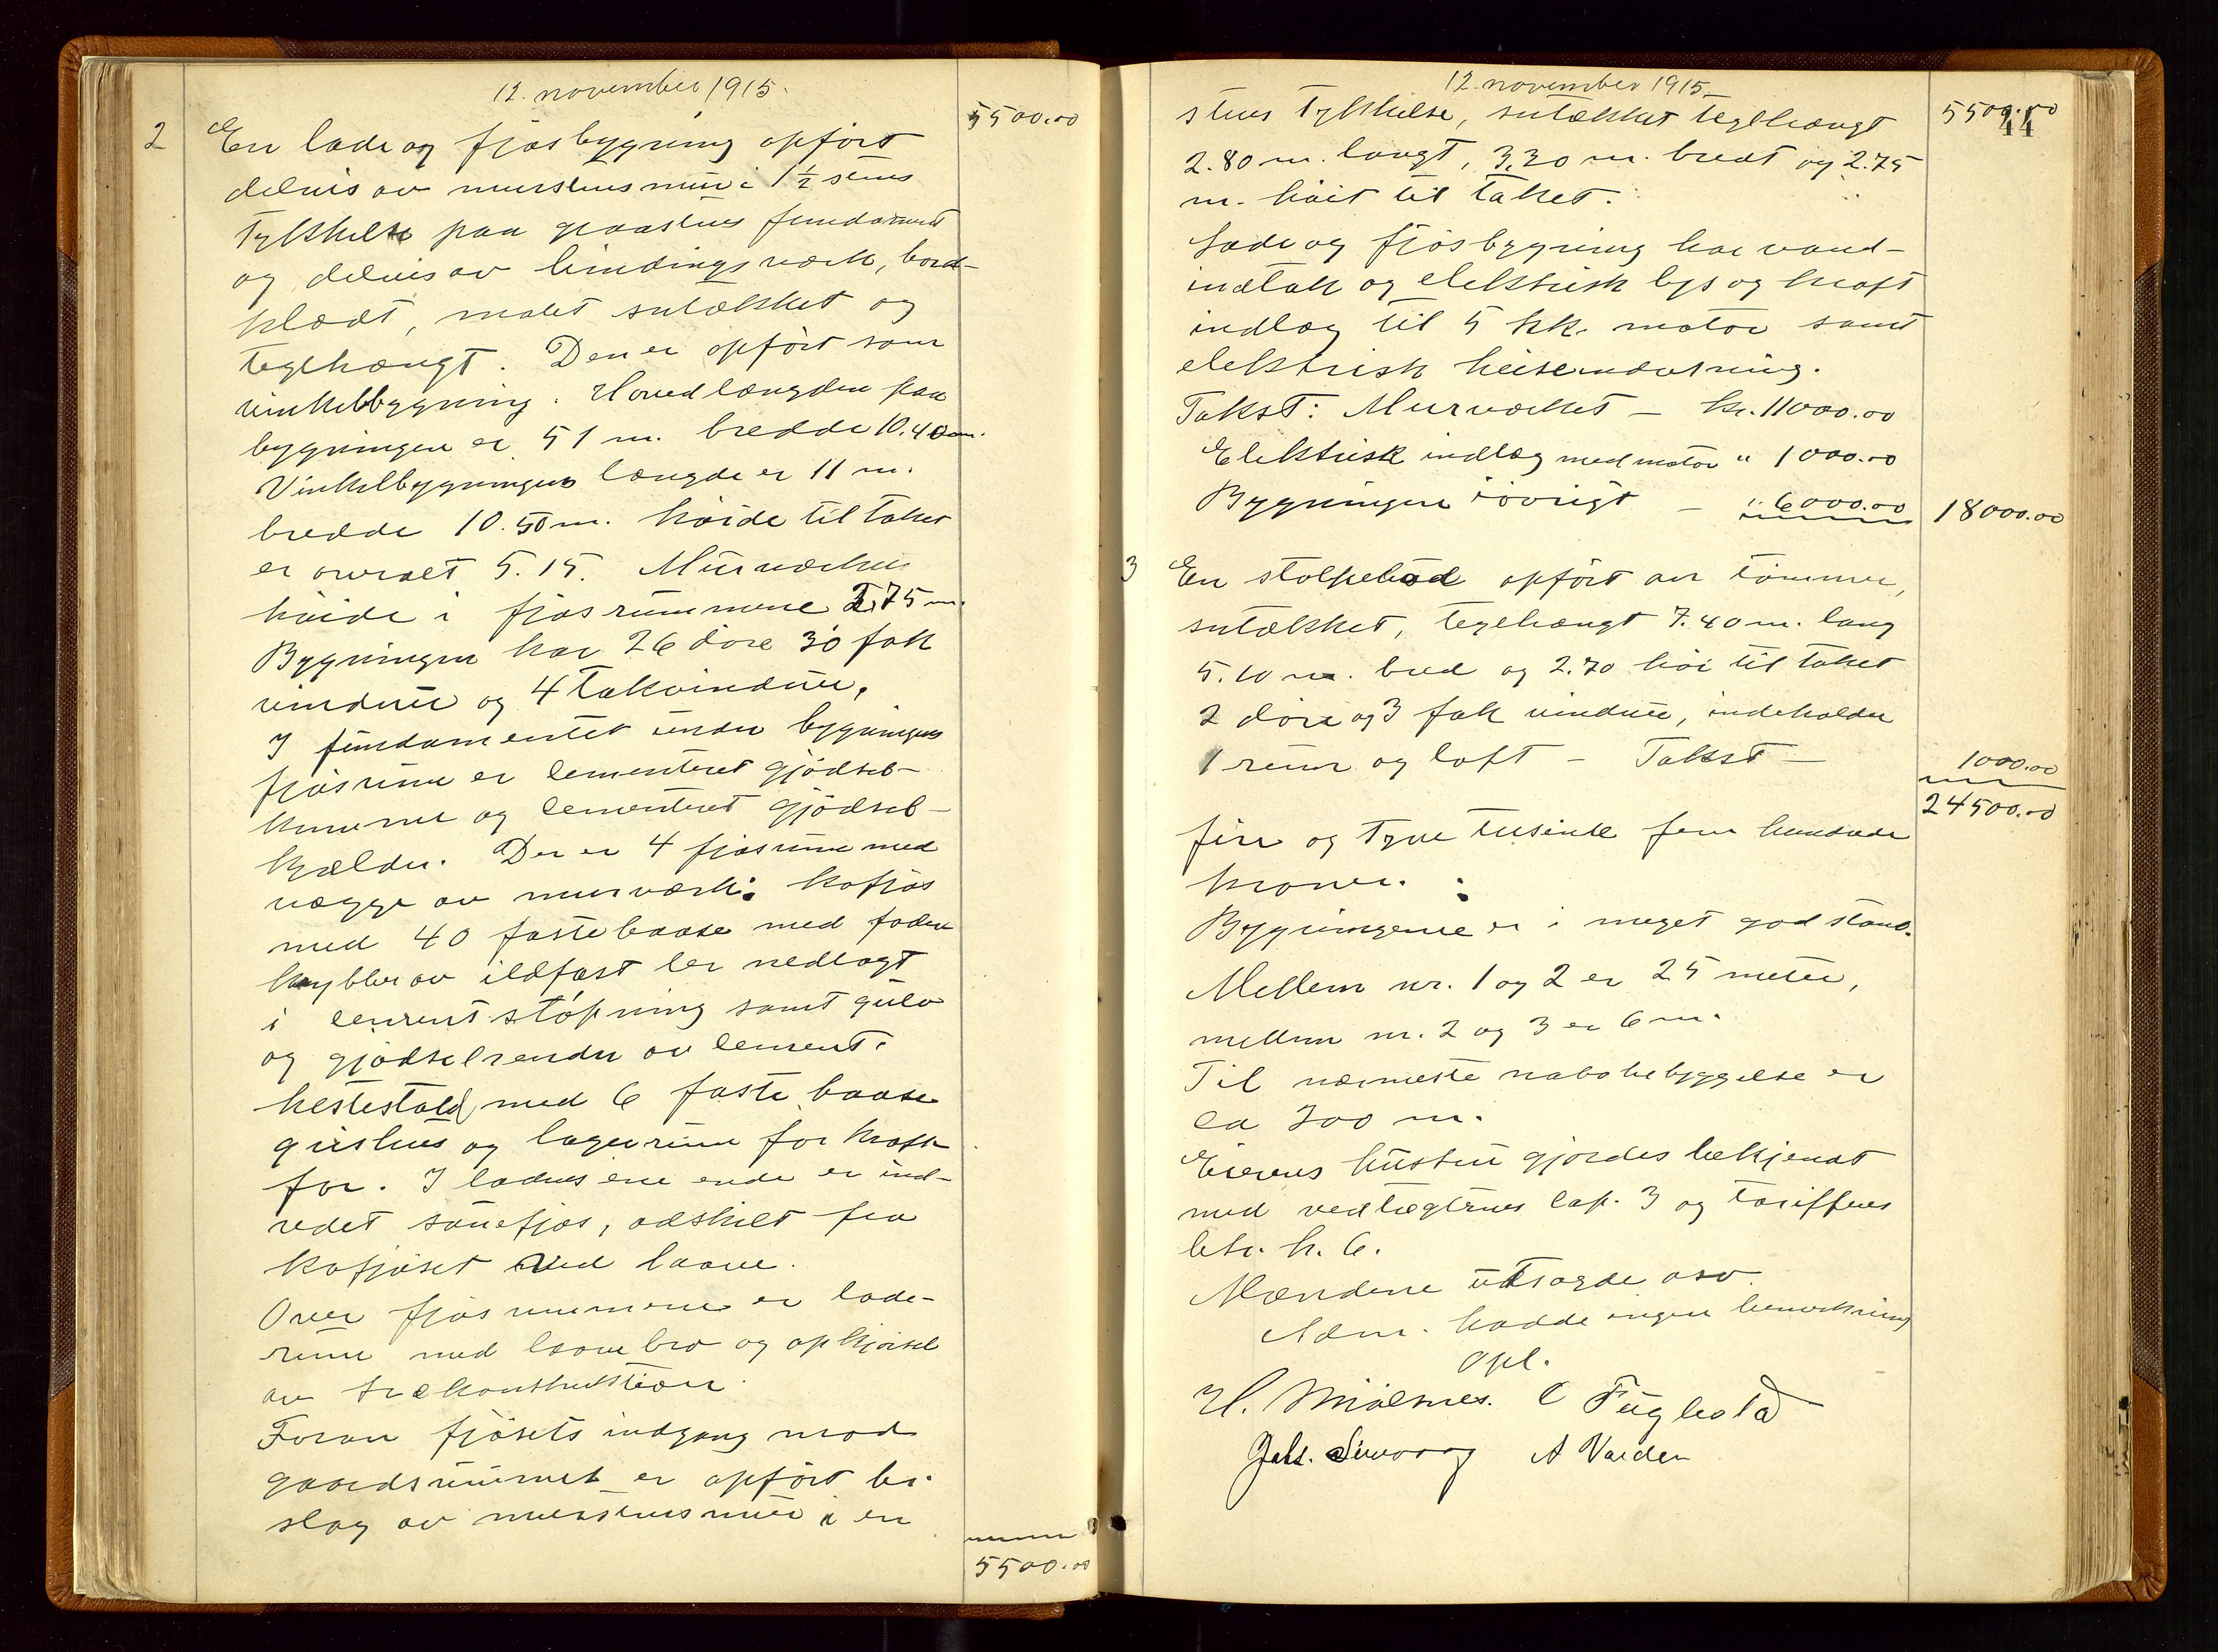 12. november 1915.
5500.00
2 En lade og fjøsbygning opført
delvis av murstensmur i 1½ stens
Tykkelse paa graastens fundament
og delvis av bindingsverk, bord-
klædt, malet sutækket og
teglhængt. Den er opført som
vinkelbygning. Hovedlængden paa
bygningen er 51 m. bredde 10.40 m.
Vinkelbygningens længde er 11 m.
bredde 10.50 m. høide til taket
er overalt 5.15. Murværkets
høide i fjøsrummene 2.75 m.
Bygningen har 26 døre 30 fak
vinduer og 4 takvinduer.
I fundamentet under bygningens
fjøsrum er cementeret gjødsel-
kummer og cementeret gjødsel-
kjælder. Der er 4 fjøsrum med
vægge av murværk: Kofjøs
med 40 faste baase med foder
krybber av ildfast ler nedlagt
i cementstøpning samt gulv
og gjødselrender av cement.
hestestald med 6 faste baase
grishus og lagerrum for kraft
for. I ladens ene ende er ind-
redet sauefjøs, adskilt fra
kofjøset ved laave.
Over fjøsrummene er lade-
rum med laavebro og opkjørsel
av trækonstruktion.
Foran fjøsets indgang mod
gaardsrummet er opført bi-
slag av murstensmur i en
5500.00
12. november 1915.
44
stens Tykkelse, sutækket teglhængt 5500.00
2.80 m. langt, 3.30 m. bredt og 2.75
m. høit til taket.
Lade og fjøsbygning har vand-
indtak og elektrisk lys og kraft
indlæg til 5 hk. motor samt
elektrisk heiseindretning.
Takst: Murværket - kr. 11000.00
Elektrisk indlæg med motor " 1000.00
Bygningen iøvrigt - " 6000.00 18000.00
3 En stolpebod opført av tømmer,
sutækket, teglhængt 7.40 m. lang
5.10 m. bred og 2.70 høi til taket
2 døre og 3 fak vinduer, indeholder
1 rum og loft - Takst - 1000.00
24500.00
fire og tyve tusinde fem hundrede
kroner.
Bygningerne er i meget god stand.
Mellem nr. 1 og 2 er 25 meter,
mellem nr. 2 og 3 er 6 m.
Til nærmeste nabobebyggelse er
ca 300 m.
Eierens hustru gjordes bekjendt
med vedtægternes cap. 3 og tariffens
litr. h. 6.
Mændene uttsagde osv.
Adm. hadde ingen bemerkning
Opl.
H. Mælsnes. C Fuglestad
Jals. A Varden